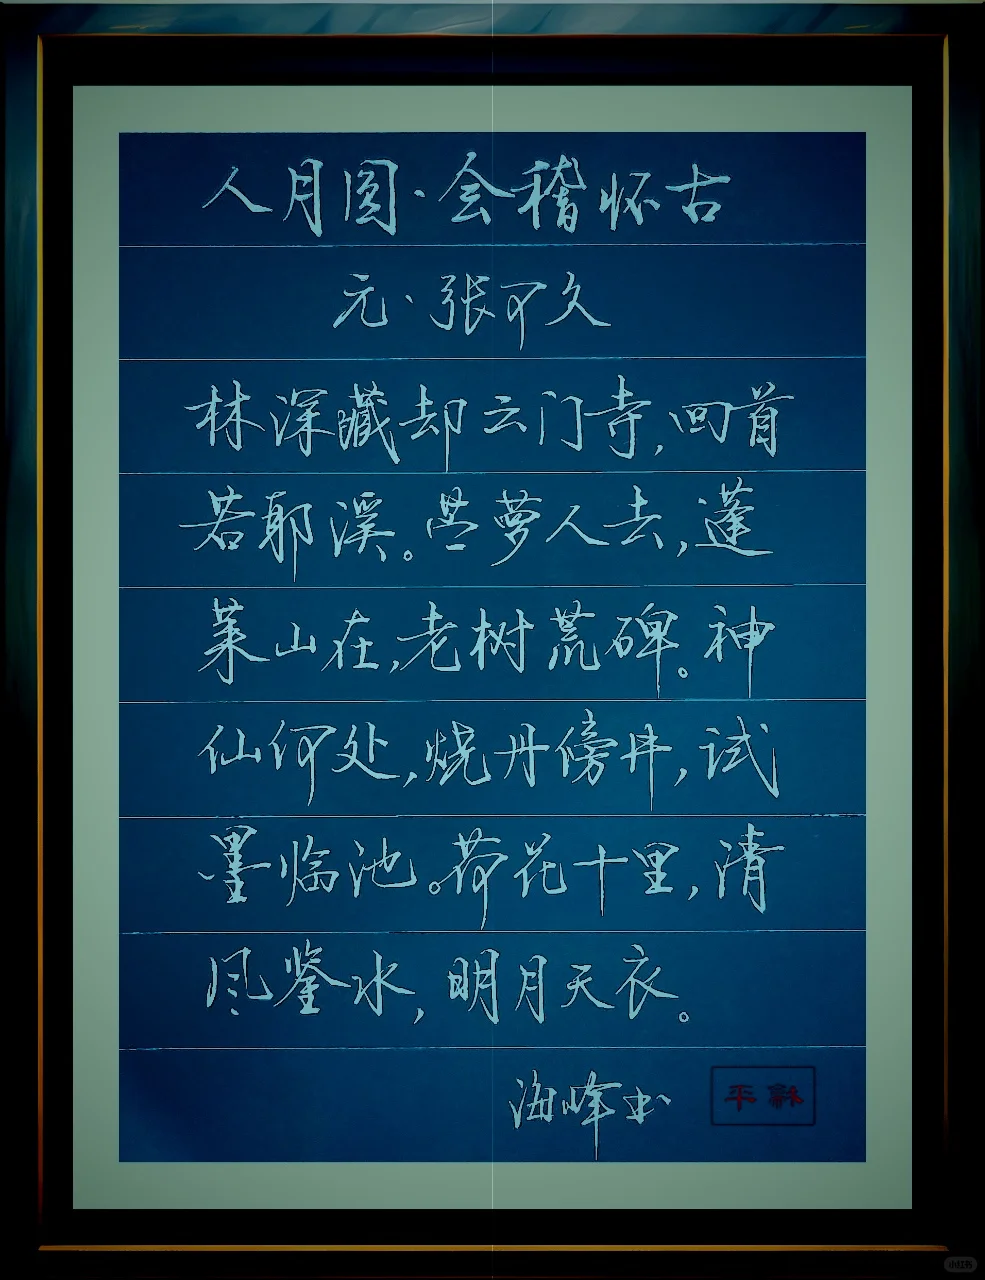 人月圆·会稽怀古
元·张可久
林深藏却云门寺,回首
若耶溪。苎萝人去,蓬
莱山在,老树荒碑。神
仙何处,烧丹傍井,试
墨临池。荷花十里,清
风鉴水,明月天衣。
海峰书
小红书